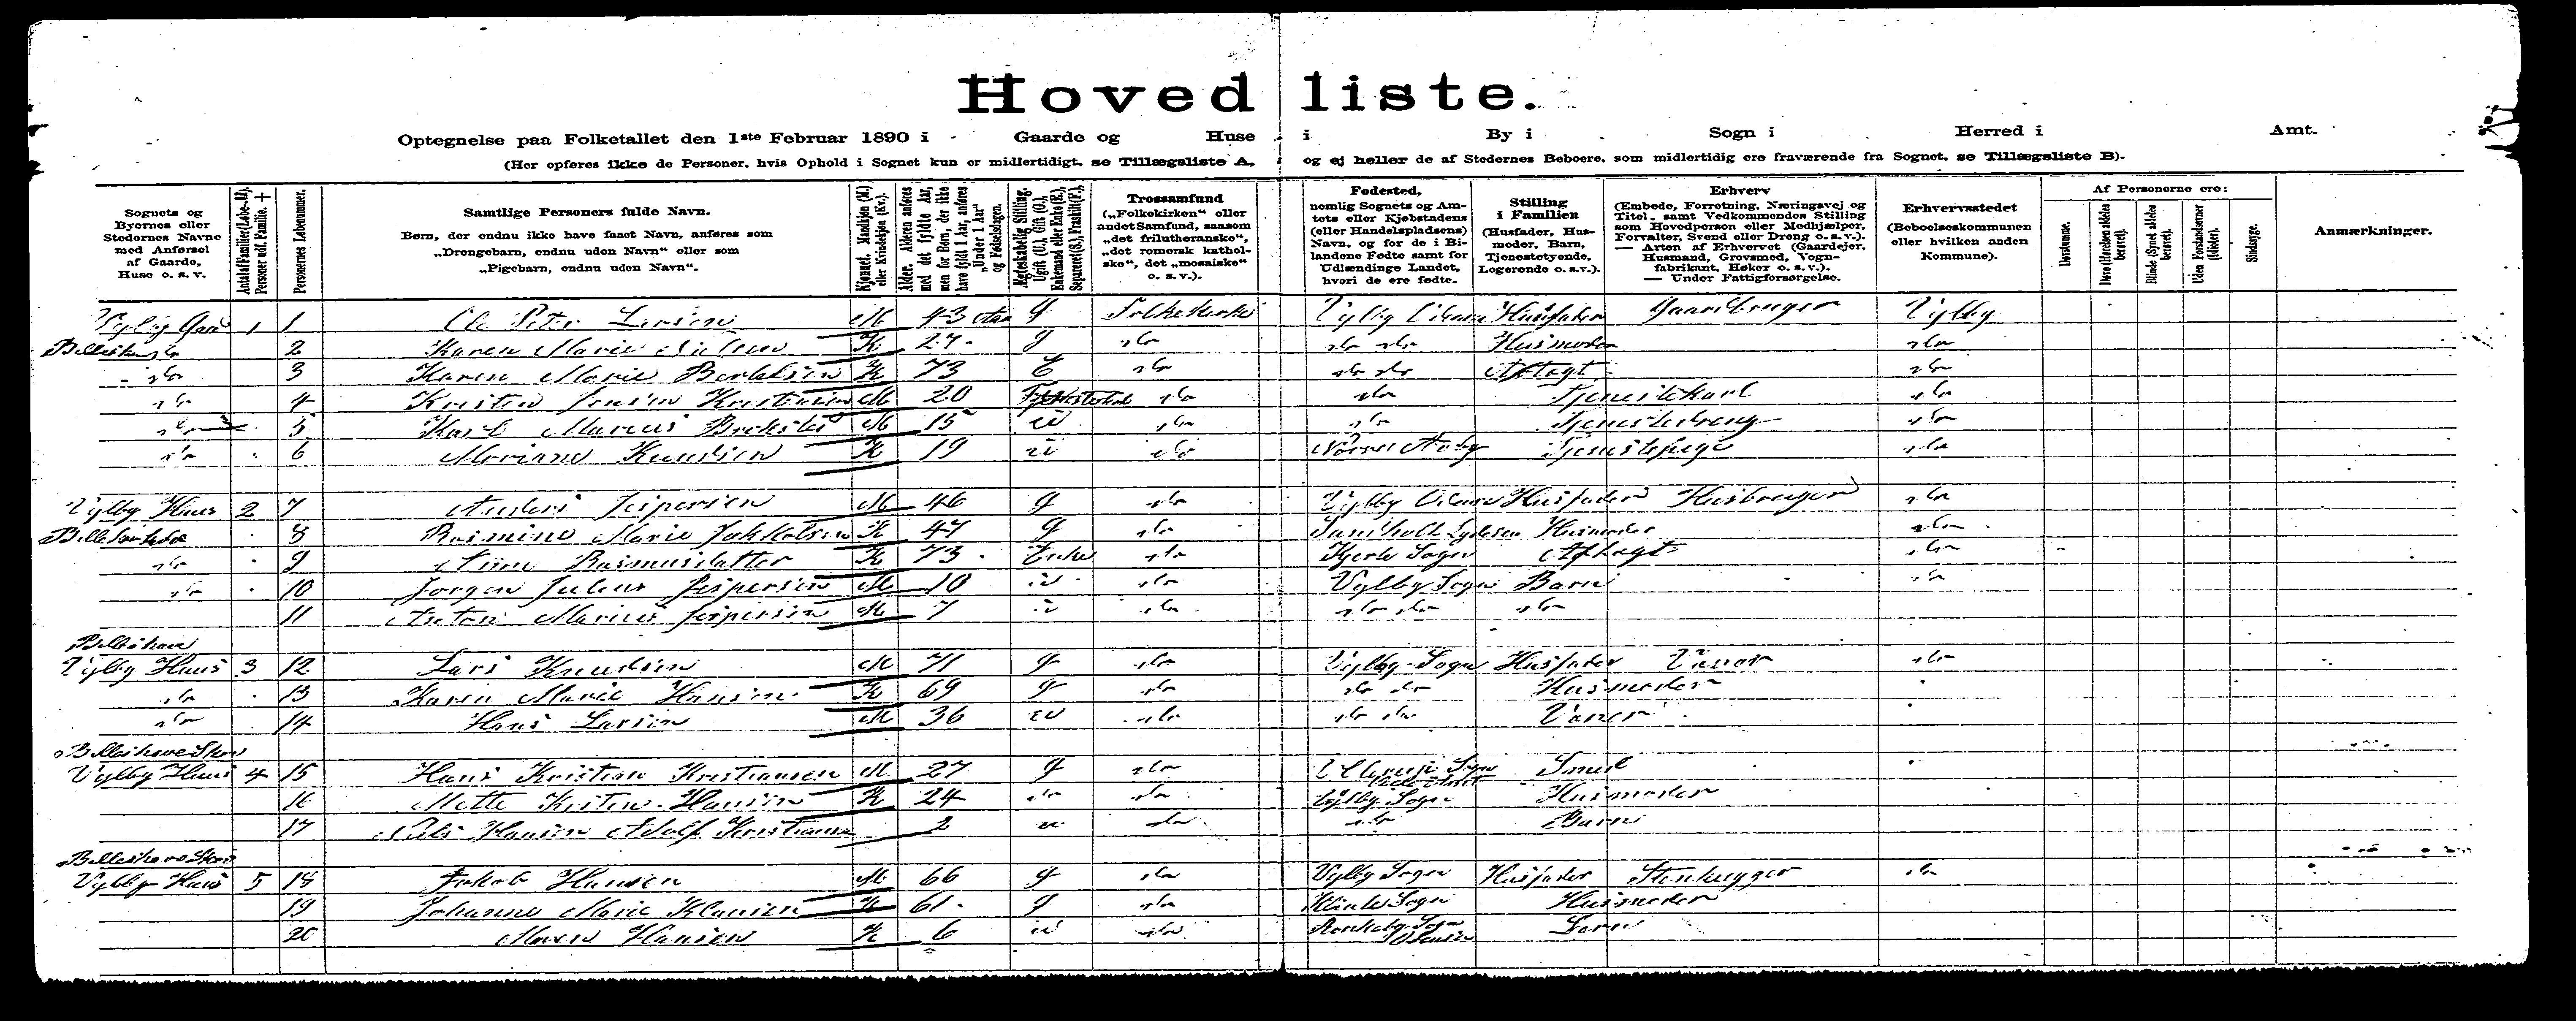 Hovedliste.
Optegnelse paa Folketallet den 1ste Februar 1890 i Gaarde og Huse i By i Sogn i Herred i Amt.
(Her opføres ikke de Personer, hvis Ophold i Sognet kun er midlertidigt, se Tillægsliste A, og ej heller de af Stedernes Beboere, som midlertidig ere fraværende fra Sognet, se Tillægsliste B).
Sognets og Byernes eller Stedernes Navne med Anførsel af Gaarde, Huse o. s. v.
Antal af Familier (Løbe-Nr.). Personer udf. Familie. +
Personernes Løbenummer.
Samtlige Personers fulde Navn.
Børn, der endnu ikke have faaet Navn, anføres som „Drengebarn, endnu uden Navn“ eller som „Pigebarn, endnu uden Navn“.
Kjønnet. Mandkjøn (M.) eller Kvindekjøn (Kv.).
Alder. Alderen anføres med det fyldte Aar, men for Børn, der ikke have fyldt 1 Aar, anføres „Under 1 Aar“ og Fødselsdagen.
Ægteskabelig Stilling. Ugift (U.), Gift (G.), Enkemand eller Enke (E.), Separeret (S.), Fraskilt (F.).
Trossamfund („Folkekirken“ eller andet Samfund, saasom „det frilutheranske“, „det romersk katholske“, det „mosaiske“ o. s. v.).
Fødested, nemlig Sognets og Amtets eller Kjøbstadens (eller Handelspladsens) Navn, og for de i Bilandene Fødte samt for Udlændinge Landet, hvori de ere fødte.
Stilling i Familien (Husfader, Husmoder, Barn, Tjenestetyende, Logerende o. s. v.).
Erhverv (Embede, Forretning, Næringsvej og Titel, samt Vedkommendes Stilling som Hovedperson eller Medhjælper, Forvalter, Svend eller Dreng o. s. v.). — Arten af Erhvervet (Gaardejer, Husmand, Grovsmed, Vognfabrikant, Høker o. s. v.). — Under Fattigforsørgelse.
Erhvervsstedet (Beboelseskommunen eller hvilken anden Kommune).
Af Personerne ere:
Døvstumme.
Døve (Hørelsen aldeles berøvet).
Blinde (Synet aldeles berøvet).
Uden Forstandsevner (Idioter).
Sindssyge.
Anmærkninger.
1 1 Ole Peter Larsen M 43 Aar g Folkekirke Husfader Gaardbruger Vejlby
2 Karen Marie K 27 g do do do Husmoder do
do 3 Karen Marie K 73 E do do do Aftægt do
do 4 Jensen Kristiansen M 20 do do Tjenestekarl do
do 5 Karl Marius M 15 u do do Tjenestedreng do
do 6 Mariane Knudsen K 19 u do Nørre Aaby Tjenestepige do
Vejlby Huus 2 7 Anders Jespersen M 46 g do Vejlby Husfader Husbruger do
8 Rasmine Marie K 47 g do Husmoder do
do 9 Rasmusdatter K 73 Enke do Sogn Aftægt do
do 10 Jørgen Julius Jespersen M 10 u do Vejlby Sogn Barn do
11 Anton Marius Jespersen M 7 u do do do do
Vejlby Huus 3 12 Lars Knudsen M 71 g do Vejlby Sogn Husfader do
do 13 Karen Marie Hansen K 69 g do do do Husmoder
do 14 Hans Larsen M 36 u do do do
Vejlby Huus 4 15 Hans Kristian Kristiansen M 27 g do Sogn Smed
16 Mette Kirstine Hansen K 24 do do Vejlby Sogn Husmoder
17 Hansen Adolf Kristiansen 2 u do do Barn
Vejlby Huus 5 18 Jakob Hansen M 66 g do Vejlby Sogn Husfader Stenhugger do
19 Johanne Marie Klausen K 61 g do Sogn Husmoder
20 Maren Hansen K 6 u do Sogn